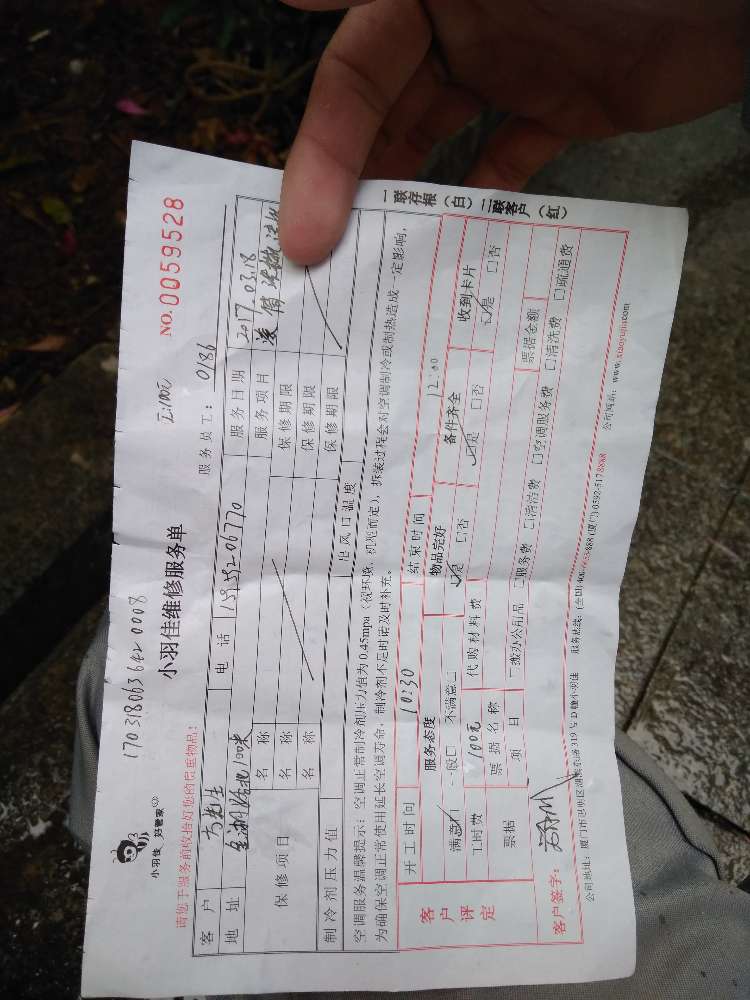 170318063642 0008
小羽佳 好管家
小羽佳维修服务单
NO.0059528
请您于服务前收拾好您的贵重物品!
服务员工: 0186
客户 方先生 电话 15259206770 服务日期 2017.03.18
地址 服务项目
保修项目
名称 保修期限
名称 保修期限
名称 保修期限
制冷剂压力值 出风口温度
空调服务温馨提示: 空调正常制冷剂压力值为0.45mpa (视环境、机型而定), 拆装过程会对空调制冷或制热造成一定影响,
为确保空调正常使用延长空调寿命, 制冷剂不足时请及时补充。
开工时间 10:30 结束时间 12:00
客户评定
服务态度 物品完好 备件齐全 收到卡片
满意□ 一般□ 不满意□ □是 □否 □是 □否 □是 □否
工时费 100元 代购材料费
票据 票据名称 票据金额
项目 □缴办公用品 □服务费 □清洁费 □空调服务费 □清洗费 □疏通费
客户签字:
公司网站: www.xiaoyujia.com
一联存根 (白) 二联客户 (红)